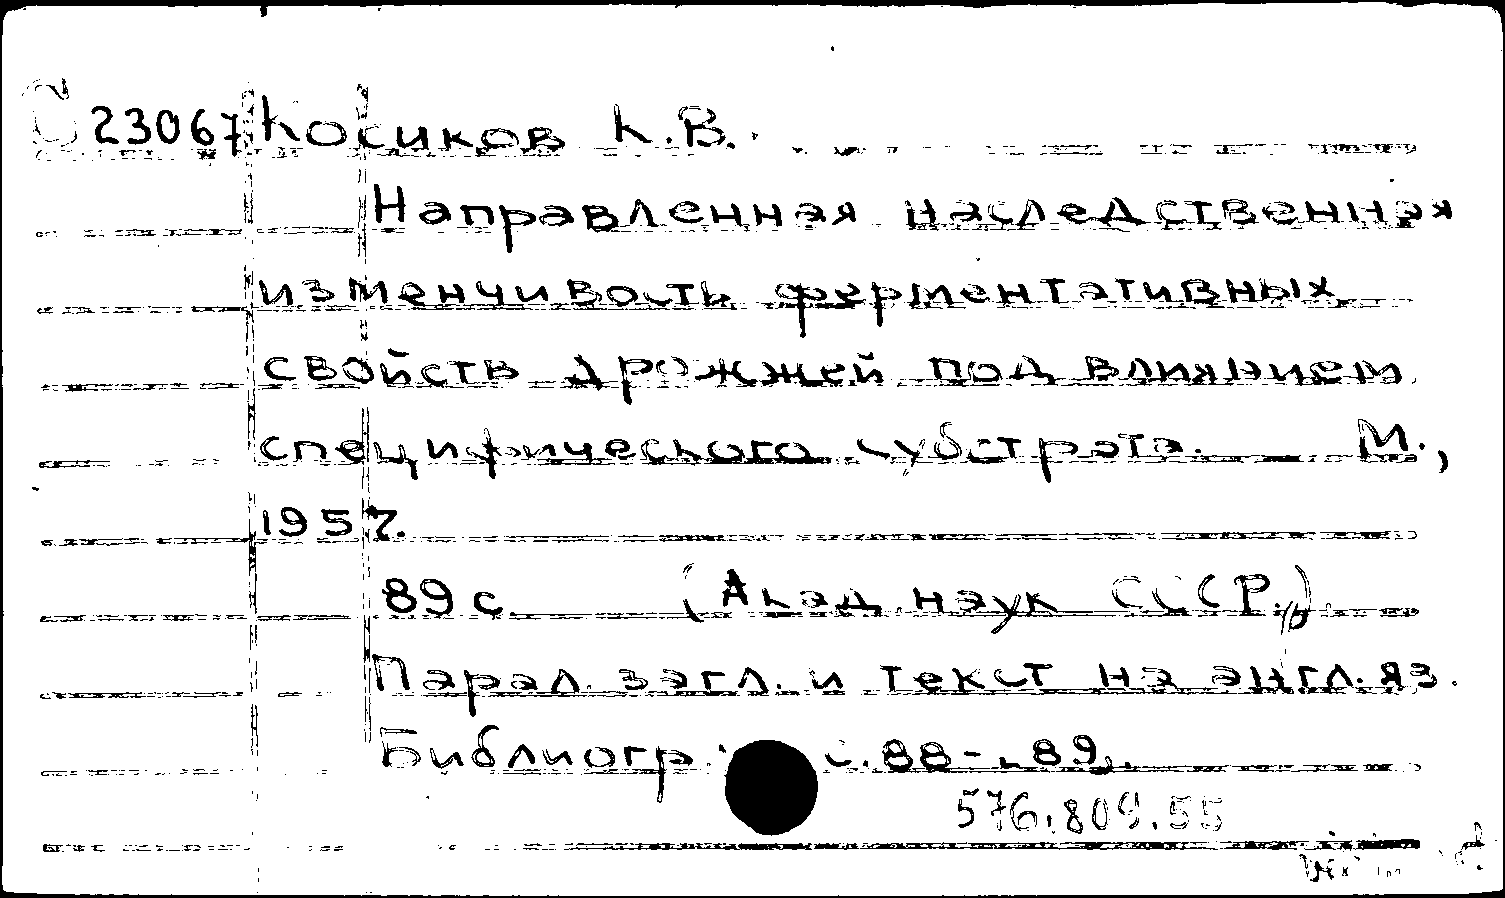 С 23067 Косиков К.В.
Направленная наследственная
изменчивость ферментативных
свойств дрожжей под влиянием
специфического субстрата. М.,
1957.
89 с. (Акад. наук СССР.)
Парал. загл. и текст на англ. яз.
Библиогр.: с. 88-89.
576.809.55